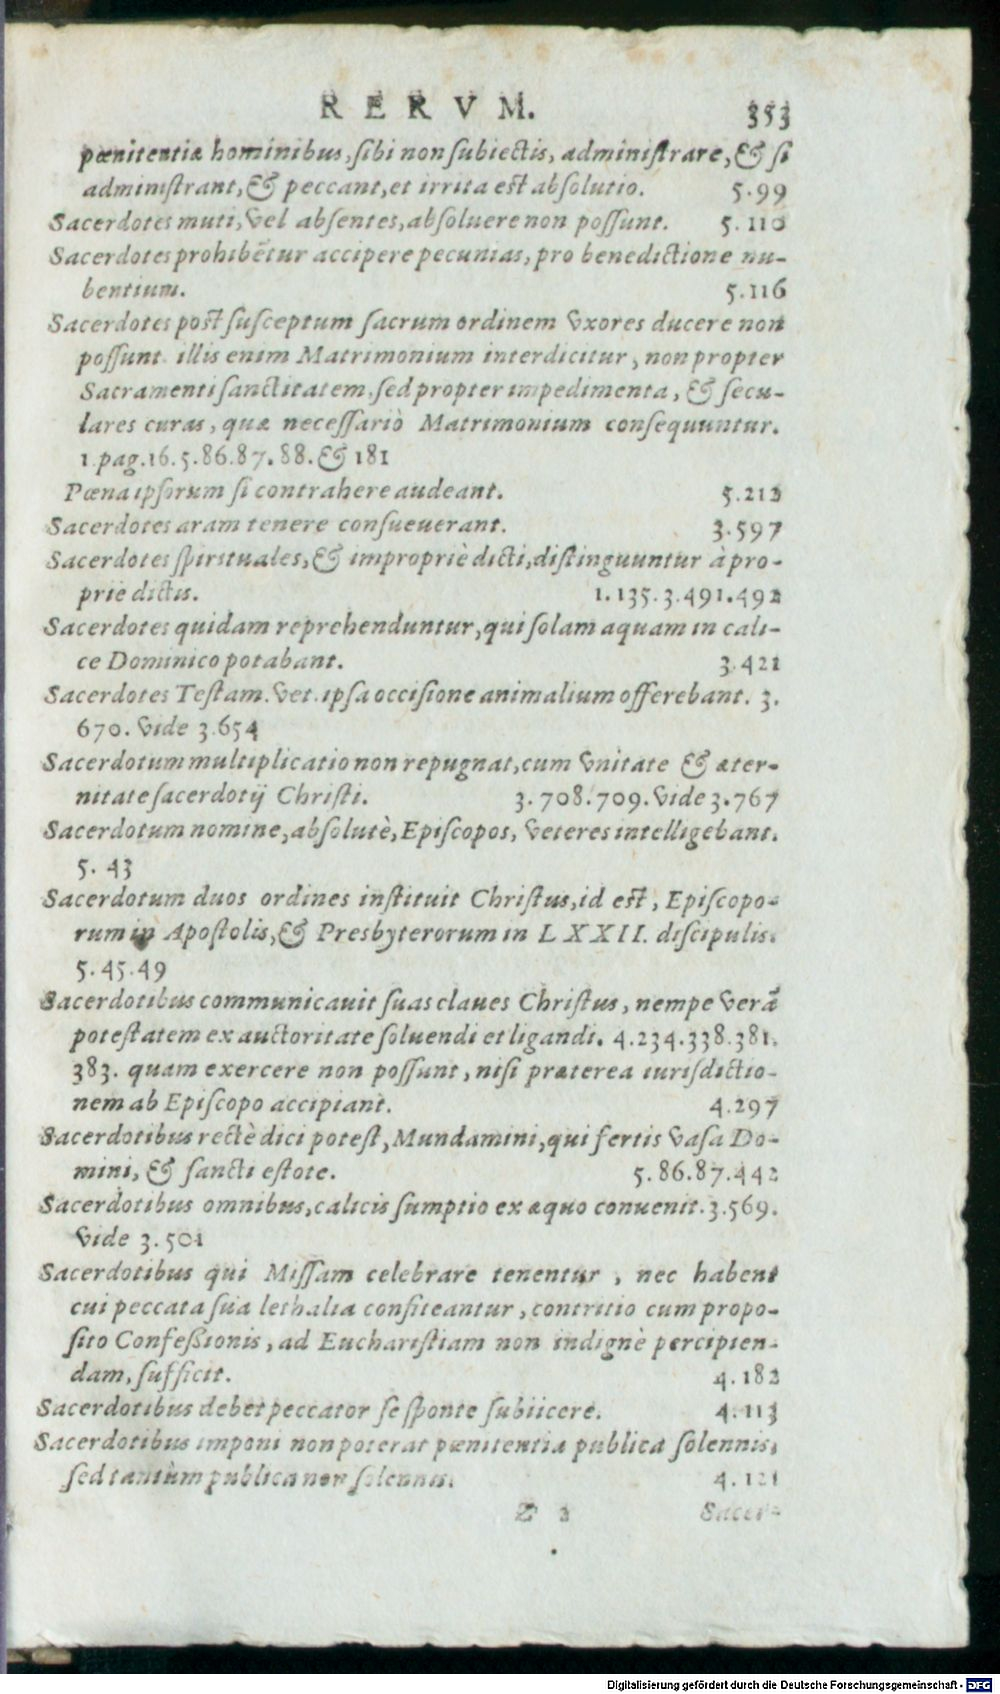 RERVM. 353
pœnitentiæ hominibus, sibi non subiectis, administrare, & si
administrant, & peccant, et irrita est absolutio. 5.99
Sacerdotes muti, vel absentes, absoluere non possunt. 5.110
Sacerdotes prohibētur accipere pecunias, pro benedictione nu-
bentium. 5.116
Sacerdotes post susceptum sacrum ordinem vxores ducere non
possunt. illis enim Matrimonium interdicitur, non propter
Sacramenti sanctitatem, sed propter impedimenta, & secu-
lares curas, quæ necessariò Matrimonium consequuntur.
1.pag.16.5.86.87.88.& 181
Pœna ipsorum si contrahere audeant. 5.212
Sacerdotes aram tenere consueuerant. 3.597
Sacerdotes spirituales, & impropriè dicti, distinguuntur à pro-
prie dictis. 1.135.3.491.492
Sacerdotes quidam reprehenduntur, qui solam aquam in cali-
ce Dominico potabant. 3.421
Sacerdotes Testam. Vet. ipsa occisione animalium offerebant. 3.
670. vide 3.654
Sacerdotum multiplicatio non repugnat, cum vnitate & æter-
nitate sacerdotij Christi. 3.708.709. vide 3.767
Sacerdotum nomine, absolutè, Episcopos, veteres intelligebant.
5.43
Sacerdotum duos ordines instituit Christus, id est, Episcopo-
rum in Apostolis, & Presbyterorum in LXXII. discipulis.
5.45.49
Sacerdotibus communicauit suas claues Christus, nempe verā
potestatem ex auctoritate soluendi et ligandi. 4.234.338.381.
383. quam exercere non possunt, nisi præterea iurisdictio-
nem ab Episcopo accipiant. 4.297
Sacerdotibus rectè dici potest, Mundamini, qui fertis vasa Do-
mini, & sancti estote. 5.86.87.442
Sacerdotibus omnibus, calicis sumptio ex æquo conuenit. 3.569.
vide 3.501
Sacerdotibus qui Missam celebrare tenentur, nec habent
cui peccata sua lethalia confiteantur, contritio cum propo-
sito Confeßionis, ad Eucharistiam non indignè percipien-
dam, sufficit. 4.182
Sacerdotibus debet peccator se sponte subiicere. 4.113
Sacerdotibus imponi non poterat pœnitentia publica solennis,
sed tantùm publica non solennis. 4.121
Z 2 Sacer-
Digitalisierung gefördert durch die Deutsche Forschungsgemeinschaft - DFG